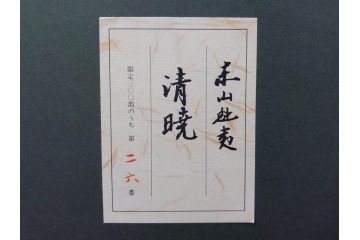 東山魁夷
清暁
限定三〇〇部のうち 第 二六 番